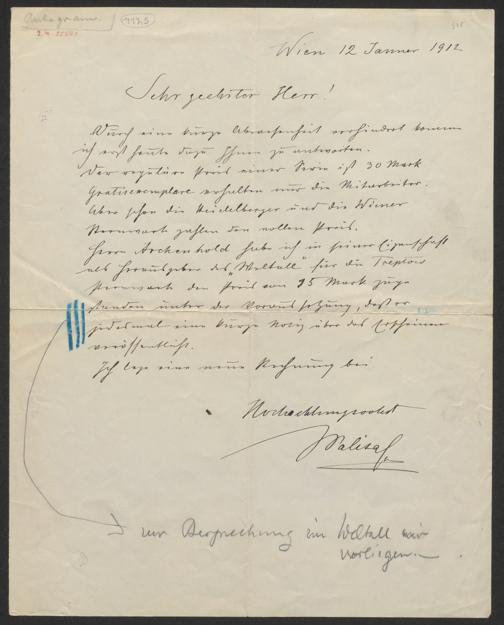 Autogramm.
Wien 12 Jänner 1912
Sehr geehrter Herr!
Durch eine kurze Abwesenheit verhindert komme
ich erst heute dazu Ihnen zu antworten.
Der reguläre Preis einer Serie ist 30 Mark
Gratisexemplare erhalten nur die Mitarbeiter.
Aber schon die Heidelberger und die Wiener
Sternwarte zahlen den vollen Preis.
Herrn Archenhold habe ich in seiner Eigenschaft
als Herausgeber des "Weltall" für die Treptow
Sternwarte den Preis von 25 Mark zuge
standen unter der Voraussetzung, daß er
jedesmal eine kurze Notiz über das Erscheinen
veröffentlicht.
Ich lege eine neue Rechnung bei
Hochachtungsvollst
JPalisa
zur Besprechung im Weltall mir
vorliegen